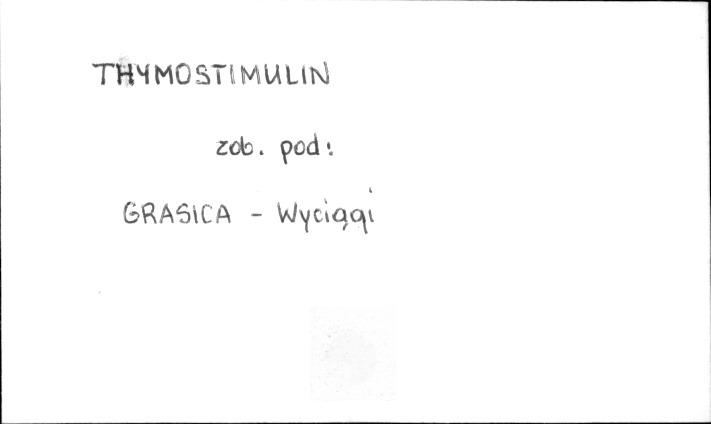 THYMOSTIMULIN
zob. pod:
GRASICA - Wyciągi